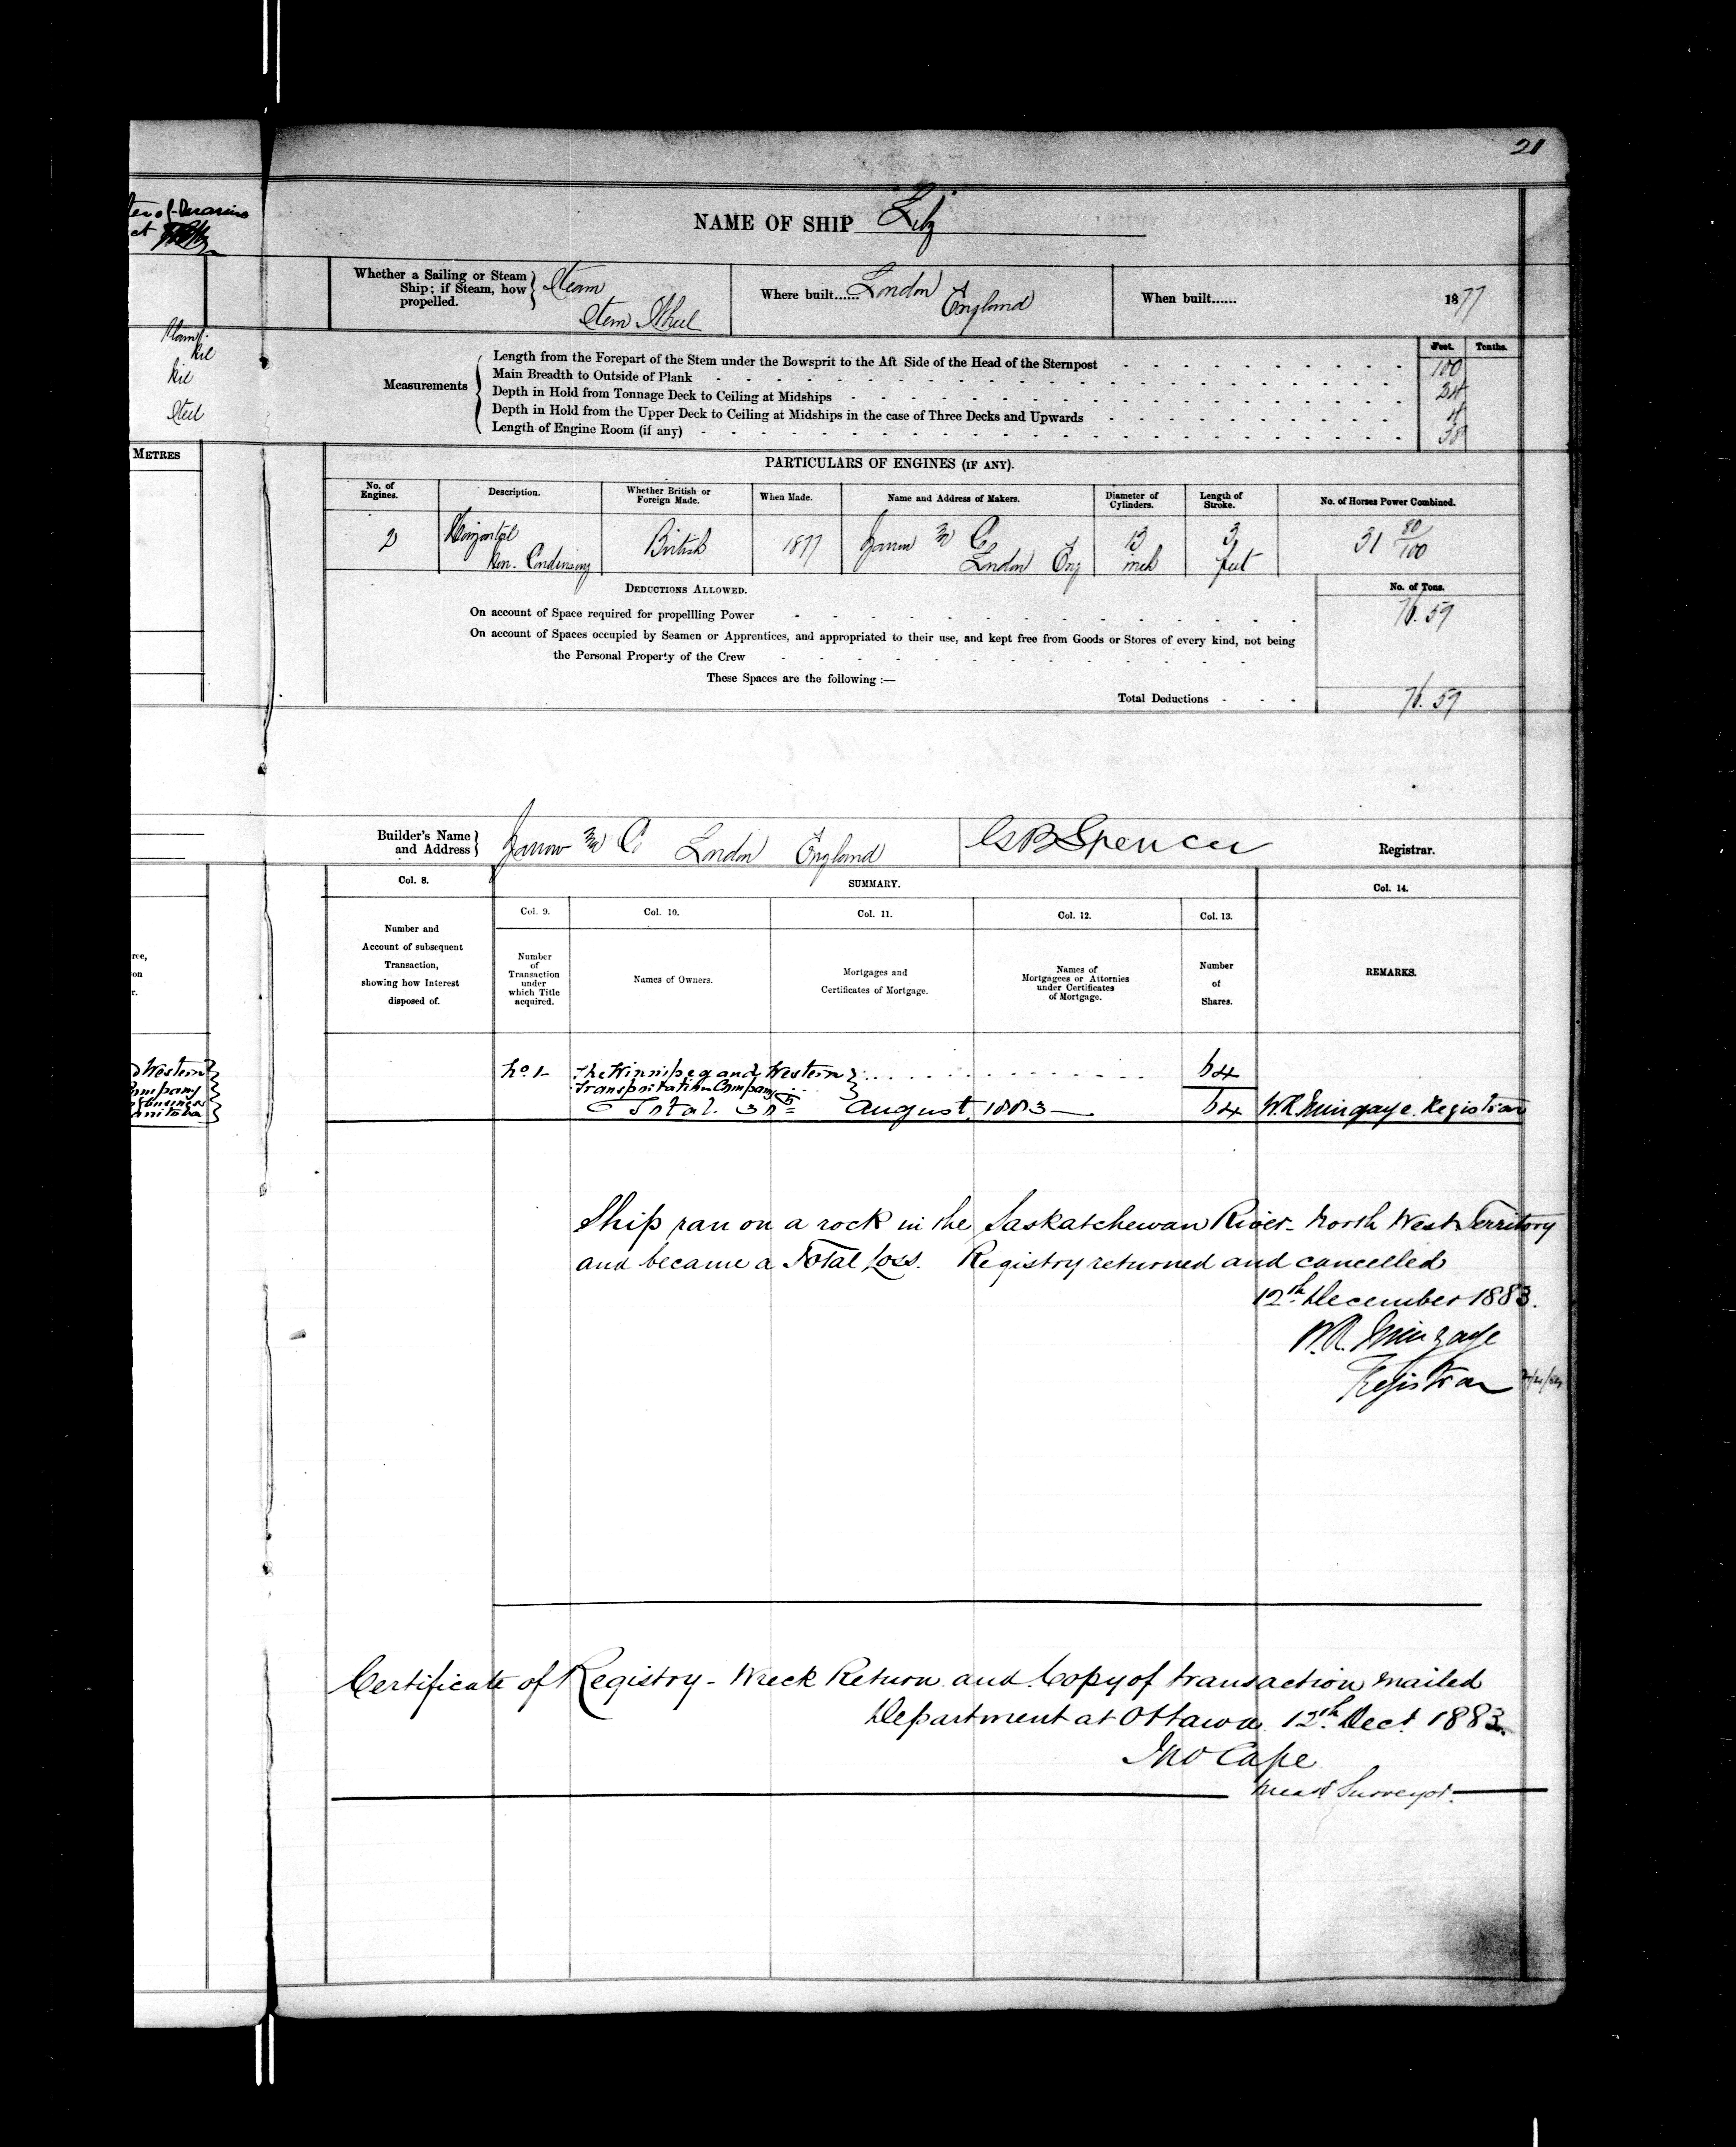 21
ter of Marine
ct
NAME OF SHIP Lily
Whether a Sailing or Steam Ship; if Steam, how propelled. } Steam
Stern Wheel
Where built...... London England
When built...... 1877
Nil
Nil
Steel
METRES
Feet. Tenths.
Measurements
Length from the Forepart of the Stem under the Bowsprit to the Aft Side of the Head of the Sternpost 100
Main Breadth to Outside of Plank 24
Depth in Hold from Tonnage Deck to Ceiling at Midships 4
Depth in Hold from the Upper Deck to Ceiling at Midships in the case of Three Decks and Upwards
Length of Engine Room (if any) 38
PARTICULARS OF ENGINES (IF ANY).
No. of Engines. Description. Whether British or Foreign Made. When Made. Name and Address of Makers. Diameter of Cylinders. Length of Stroke. No. of Horses Power Combined.
2 Horizontal British 1877 Yarrow & Co 13 3 31 80/100
Non-Condensing London Eng inch feet
DEDUCTIONS ALLOWED. No. of Tons.
On account of Space required for propellling Power 76.59
On account of Spaces occupied by Seamen or Apprentices, and appropriated to their use, and kept free from Goods or Stores of every kind, not being
the Personal Property of the Crew
These Spaces are the following :—
Total Deductions 76.59
Builder's Name and Address } Yarrow & Co London England
Spencer Registrar.
Col. 8. SUMMARY. Col. 14.
Col. 9. Col. 10. Col. 11. Col. 12. Col. 13.
Number and Account of subsequent Transaction, showing how Interest disposed of.
Number of Transaction under which Title acquired.
Names of Owners.
Mortgages and Certificates of Mortgage.
Names of Mortgagees or Attornies under Certificates of Mortgage.
Number of Shares.
REMARKS.
Western
Company
of Business
Manitoba
No. 1 The Winnipeg and Western 64
Transportation Company
Total. August 1883 64 W.R. Mingaye. Registrar
Ship ran on a rock in the Saskatchewan River - North West Territory
and became a Total Loss. Registry returned and cancelled
12th December 1883.
W.R. Mingaye
Registrar
Certificate of Registry - Wreck Return and Copy of transaction mailed
Department at Ottawa 12th Dec. 1883.
Jno Cape
Meas. Surveyor.